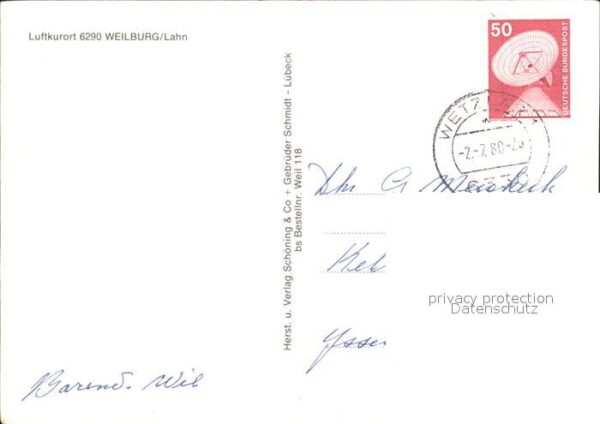 Luftkurort 6290 WEILBURG/Lahn
50
DEUTSCHE BUNDESPOST
WETZLAR
-2.-7.80-23
Herst. u. Verlag Schöning & Co + Gebrüder Schmidt - Lübeck
bs Bestellnr. Weil 118
Dhr G
Kel
Ysse
privacy protection
Datenschutz
Barend. Wil